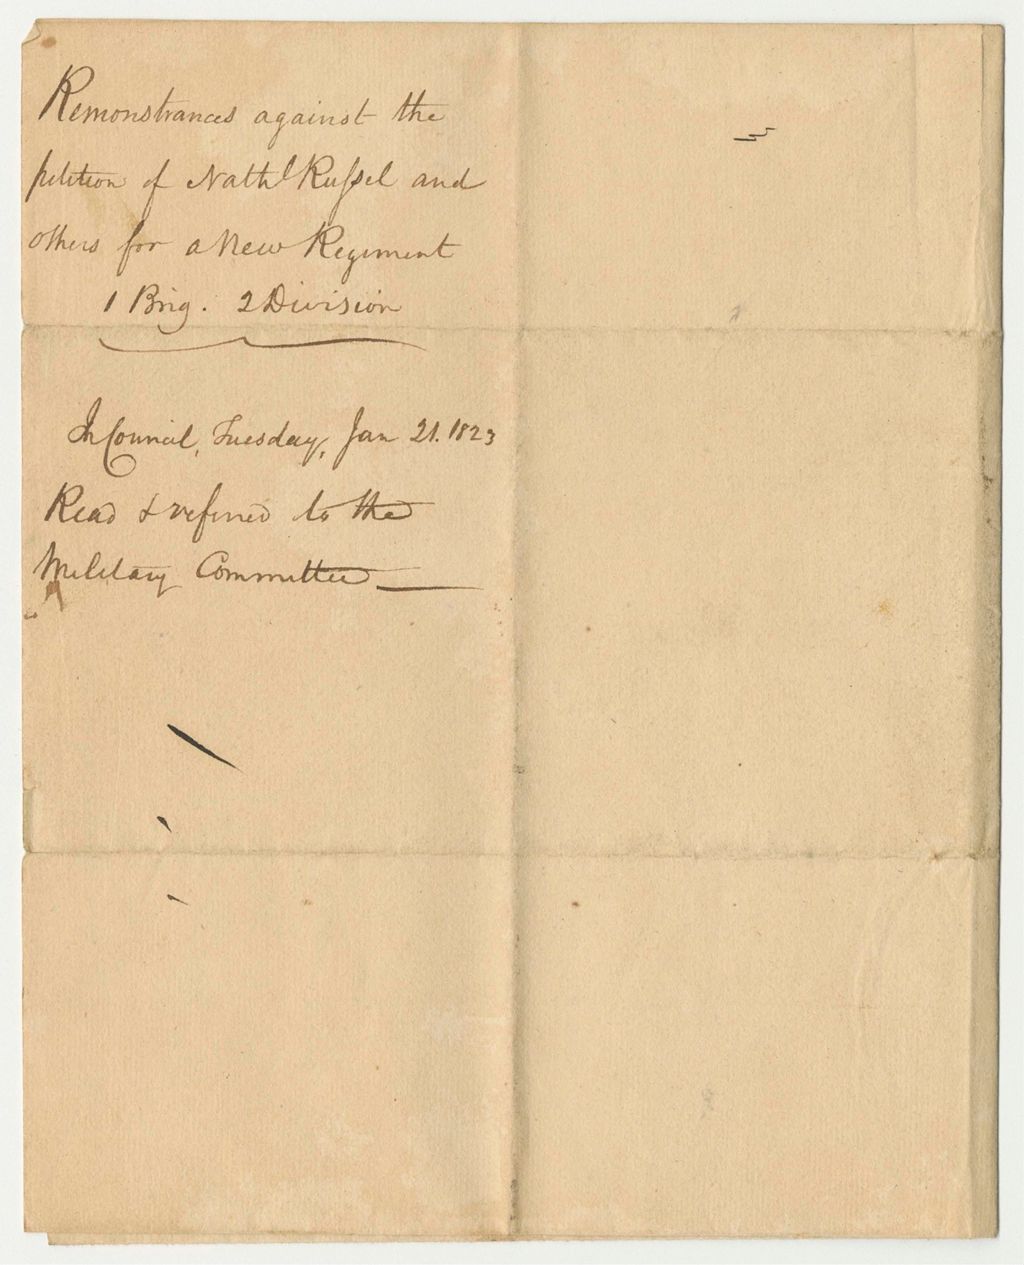 Remonstrances against the
petition of Nathl Russel and
others for a New Regiment
1 Brig. 2 Division
In Council, Tuesday, Jan 21. 1823
Read & referred to the
Military Committee